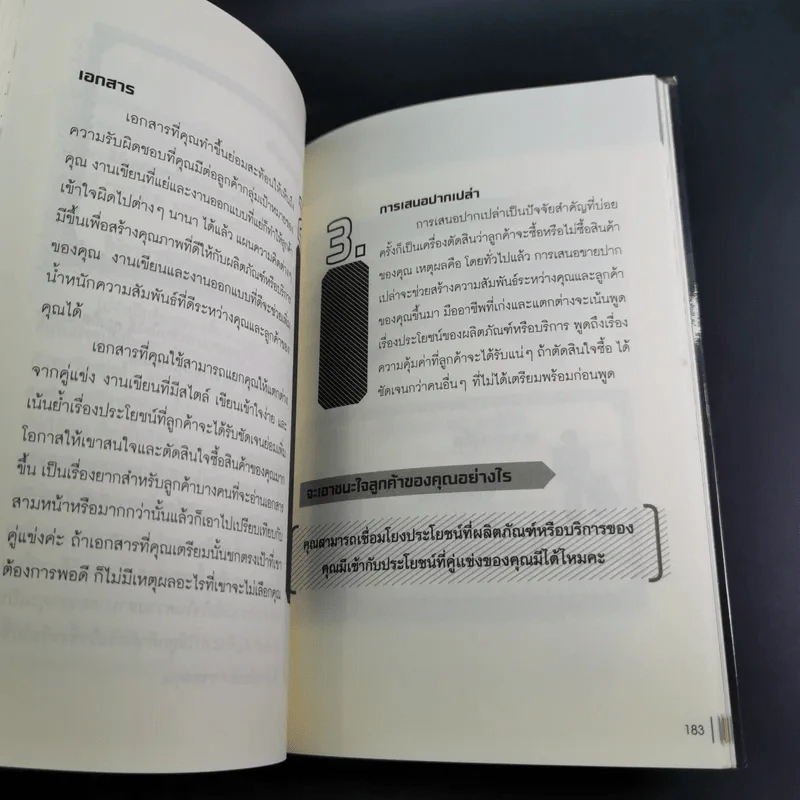 เอกสาร
เอกสารที่คุณทำขึ้นย่อมสะท้อนให้เห็นถึง
ความรับผิดชอบที่คุณมีต่อลูกค้ากลุ่มเป้าหมายของ
คุณ งานเขียนที่แย่และงานออกแบบที่แย่ก็ทำให้ลูกค้า
เข้าใจผิดไปต่างๆ นานา ได้แล้ว แผนความคิดต่างๆ
มีขึ้นเพื่อสร้างคุณภาพที่ดีให้กับผลิตภัณฑ์หรือบริการ
ของคุณ งานเขียนและงานออกแบบที่ดีจะช่วยเพิ่ม
น้ำหนักความสัมพันธ์ที่ดีระหว่างคุณและลูกค้าของ
คุณได้
เอกสารที่คุณใช้สามารถแยกคุณให้แตกต่าง
จากคู่แข่ง งานเขียนที่มีสไตล์ เขียนเข้าใจง่าย และ
เน้นย้ำเรื่องประโยชน์ที่ลูกค้าจะได้รับชัดเจนย่อมเพิ่ม
โอกาสให้เขาสนใจและตัดสินใจซื้อสินค้าของคุณมาก
ขึ้น เป็นเรื่องยากสำหรับลูกค้าบางคนที่จะอ่านเอกสาร
สามหน้าหรือมากกว่านั้นแล้วก็เอาไปเปรียบเทียบกับ
คู่แข่งค่ะ ถ้าเอกสารที่คุณเตรียมนั้นชกตรงเป้าที่เขา
ต้องการพอดี ก็ไม่มีเหตุผลอะไรที่เขาจะไม่เลือกคุณ
3.
การเสนอปากเปล่า
การเสนอปากเปล่าเป็นปัจจัยสำคัญที่บ่อย
ครั้งก็เป็นเครื่องตัดสินว่าลูกค้าจะซื้อหรือไม่ซื้อสินค้า
ของคุณ เหตุผลคือ โดยทั่วไปแล้ว การเสนอขายปาก
เปล่าจะช่วยสร้างความสัมพันธ์ระหว่างคุณและลูกค้า
ของคุณขึ้นมา มืออาชีพที่เก่งและแตกต่างจะเน้นพูด
เรื่องประโยชน์ของผลิตภัณฑ์หรือบริการ พูดถึงเรื่อง
ความคุ้มค่าที่ลูกค้าจะได้รับแน่ๆ ถ้าตัดสินใจซื้อ ได้
ชัดเจนกว่าคนอื่นๆ ที่ไม่ได้เตรียมพร้อมก่อนพูด
จะเอาชนะใจลูกค้าของคุณอย่างไร
คุณสามารถเชื่อมโยงประโยชน์ที่ผลิตภัณฑ์หรือบริการของ
คุณมีเข้ากับประโยชน์ที่คู่แข่งของคุณมีได้ไหมคะ
183